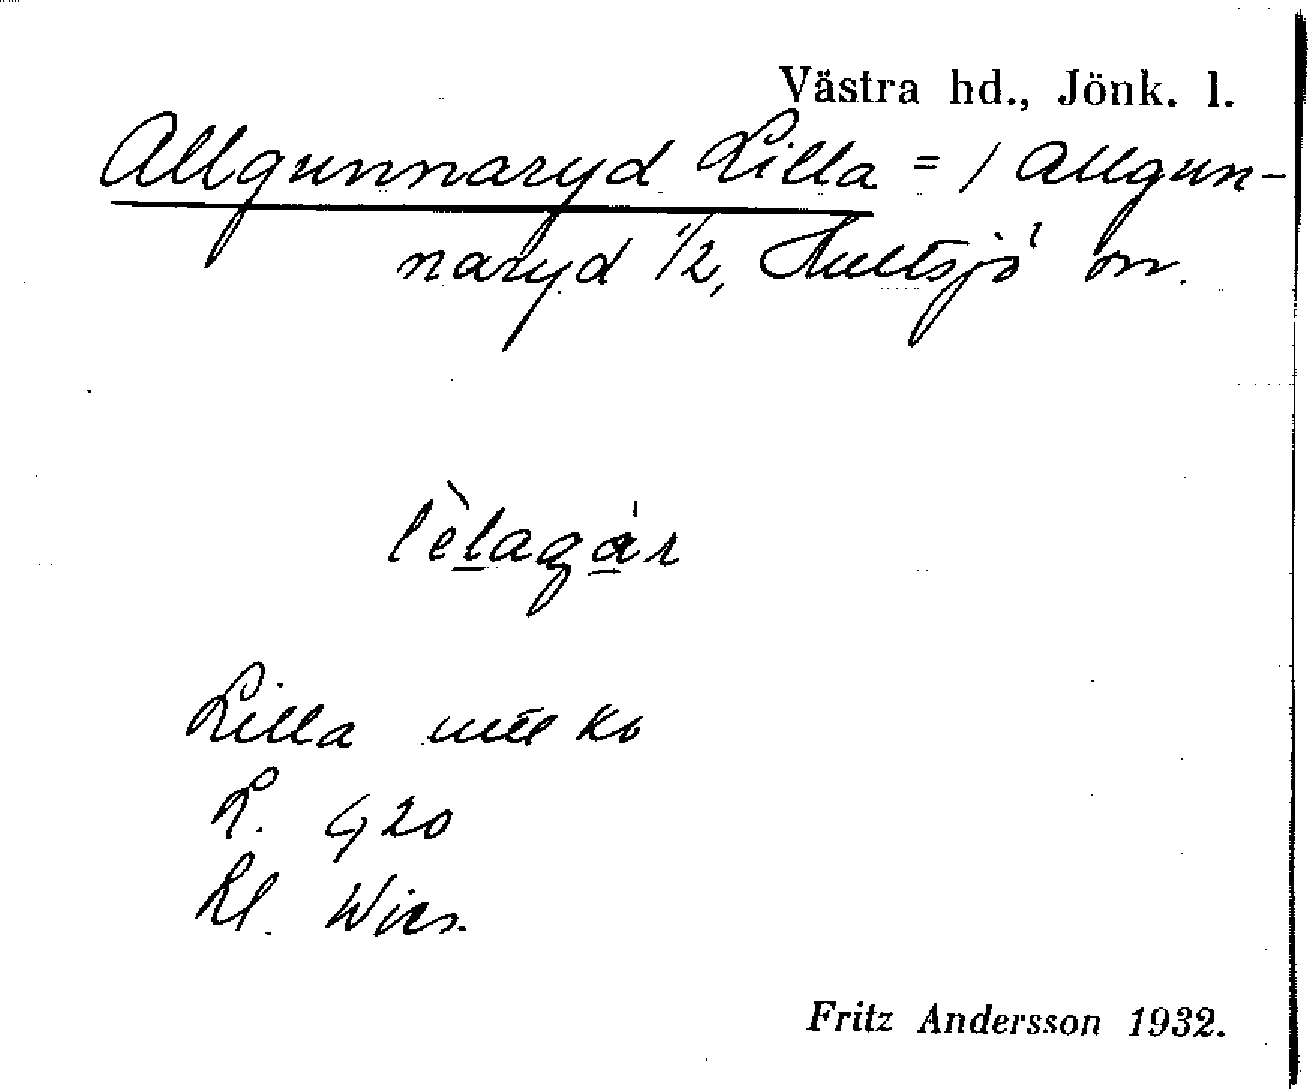 Västra hd., Jönk. l.
Allgunnaryd Lilla = 1 Allgun-
naryd 1/2, Hultsjö sn.
lèlagár
Lilla
L. G 20
Kl. Wies.
Fritz Andersson 1932.